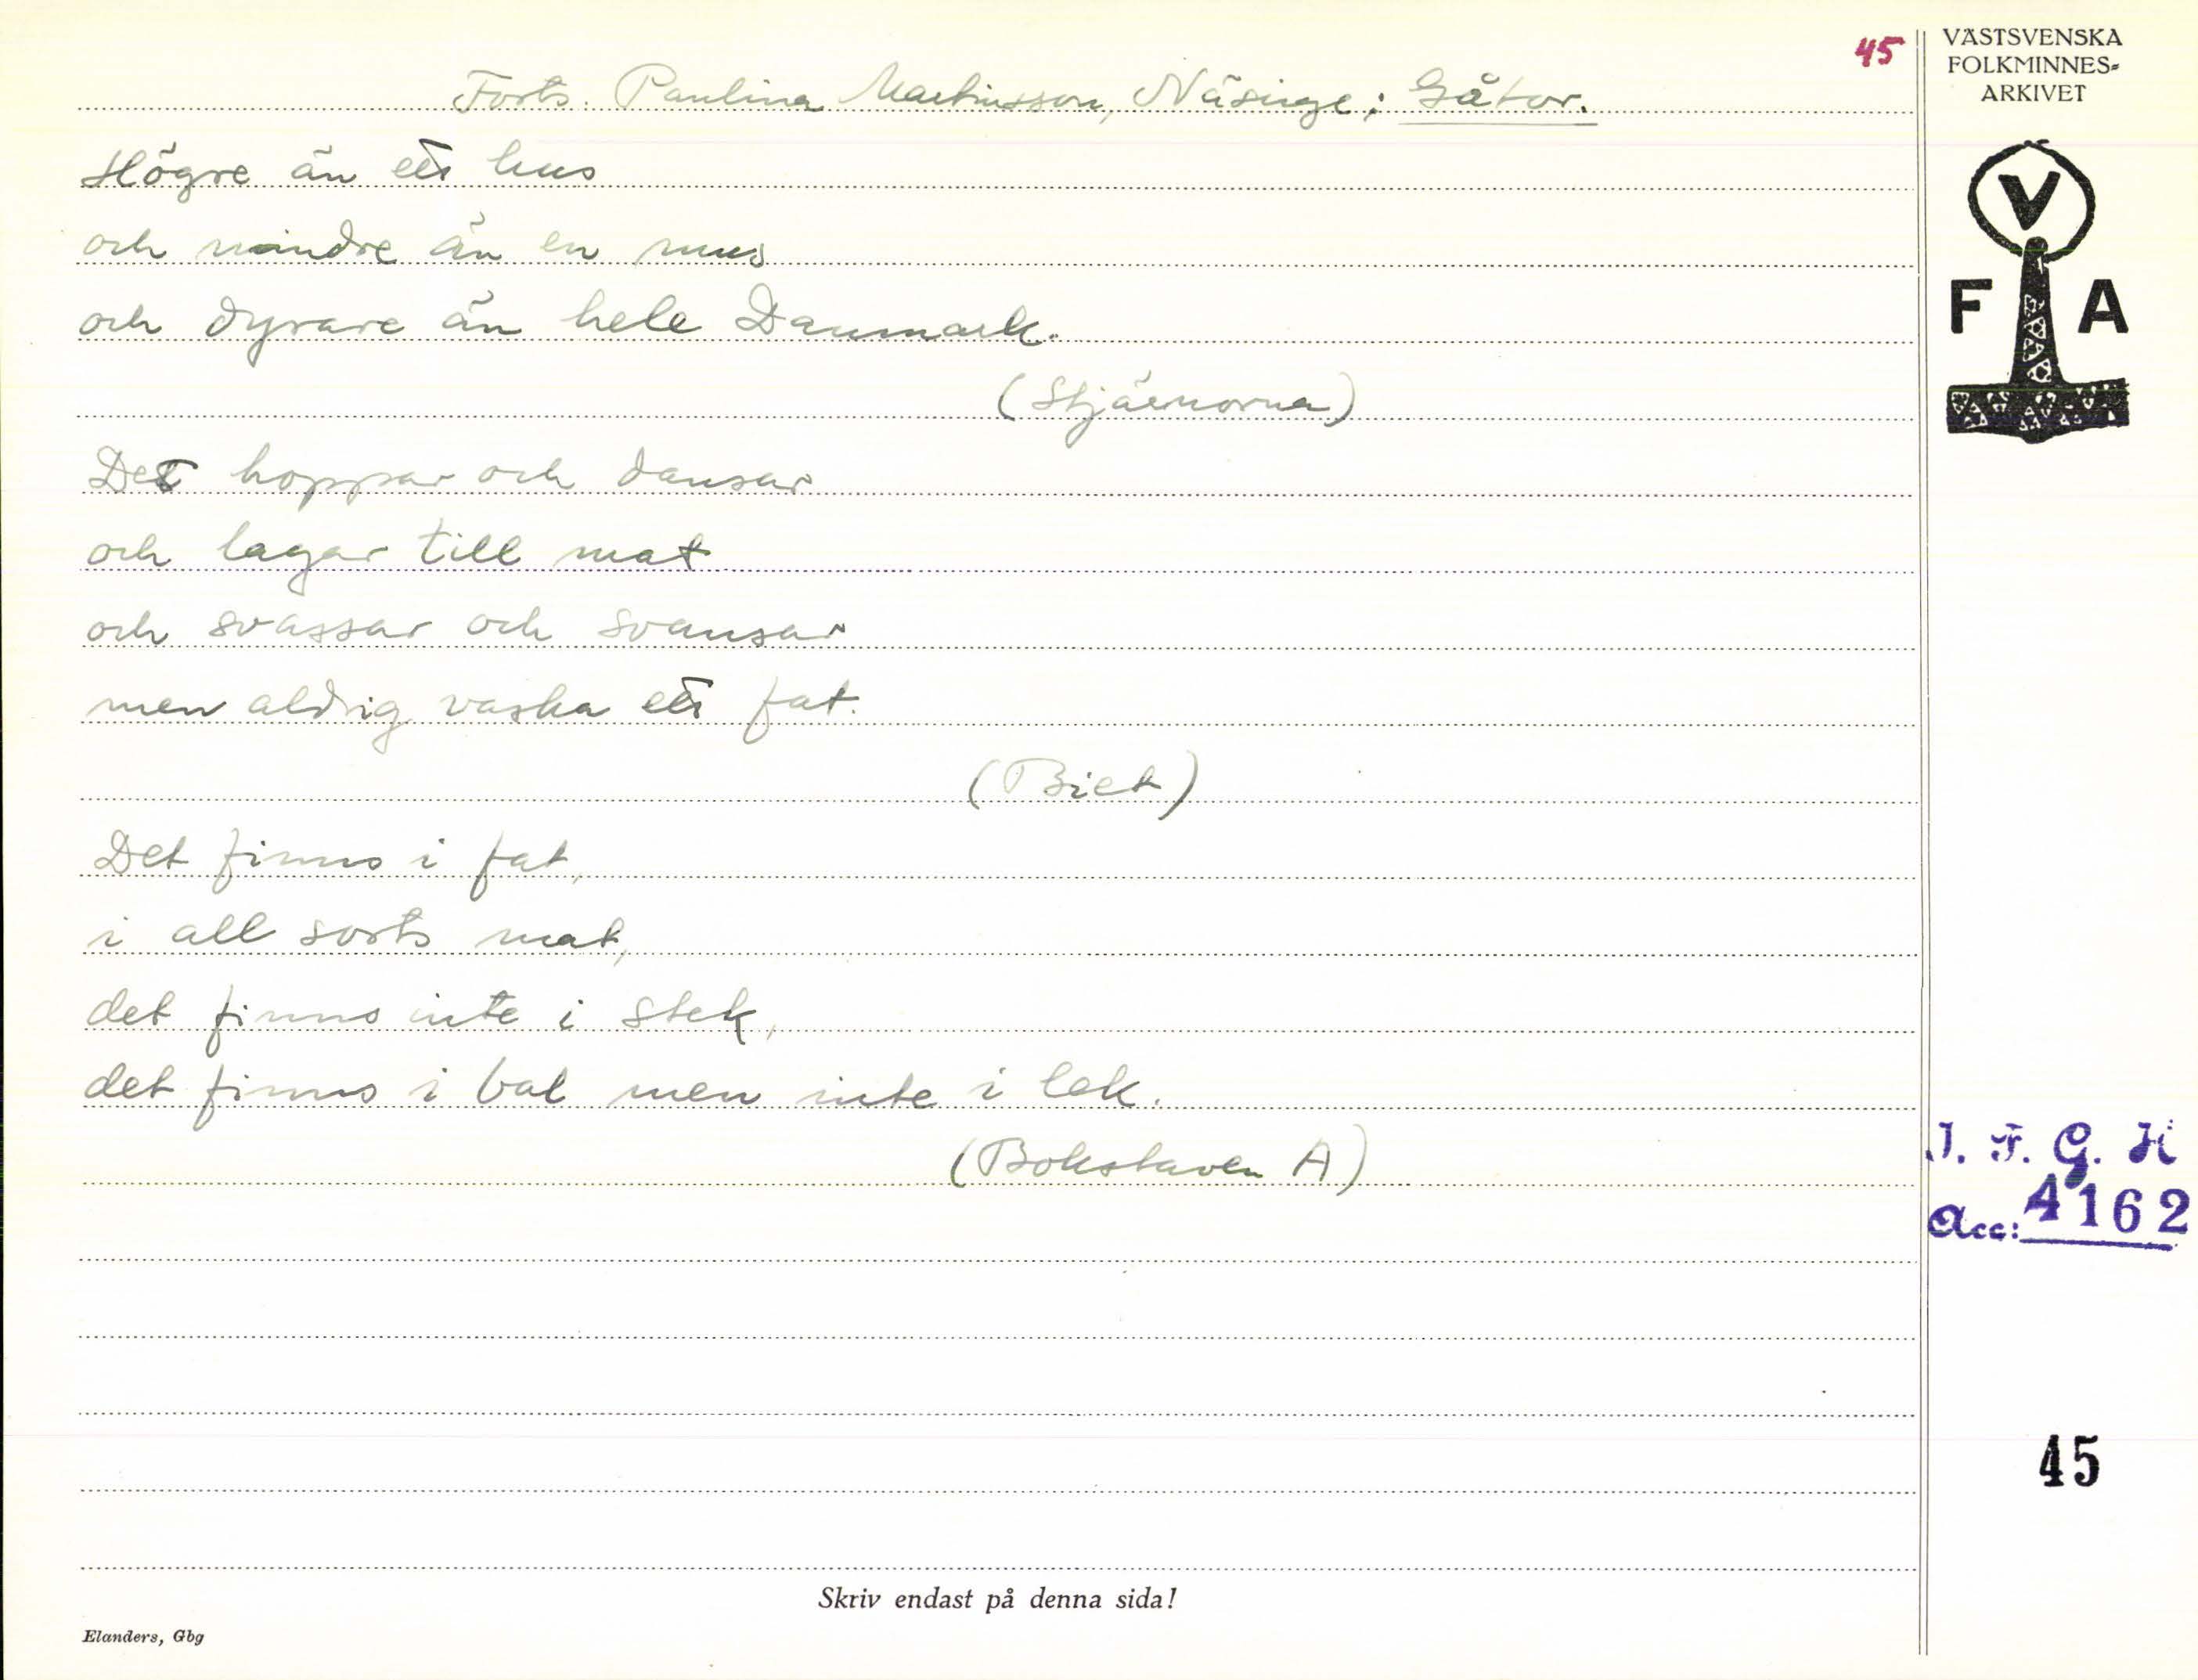 45
Forts. Paulina Martinsson, Näsinge; Gåtor.
Högre än ett hus
och mindre än en mus
och dyrare än hele Danmark.
(Stjärnorna)
Det hoppar och dansar
och lagar till mat
och svassar och svansar
men aldrig vaska ett fat.
(Biet)
Det finns i fat,
i all sorts mat,
det finns inte i stek,
det finns i bal men inte i lek.
(Bokstaven A)
Skriv endast på denna sida!
Elanders, Gbg
VÄSTSVENSKA
FOLKMINNES-
ARKIVET
V
F A
I. F. G. H
Acc: 4162
45